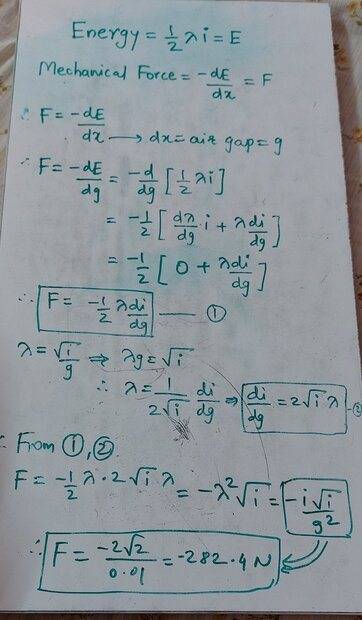 Energy = 1/2 λ i = E
Mechanical Force = -dE/dx = F
∴ F = -dE/dx → dx = air gap = g
∴ F = -dE/dg = -d/dg [1/2 λi]
= -1/2 [dλ/dg · i + λ di/dg]
= -1/2 [0 + λ di/dg]
∴ F = -1/2 λ di/dg — ①
λ = √i/g ⇒ λg = √i
∴ λ = 1/2√i di/dg ⇒ di/dg = 2√i λ — ②
∴ From ①, ②
F = -1/2 λ · 2√i λ = -λ²√i = -i√i/g²
∴ F = -2√2/0.01 = -282.4 N